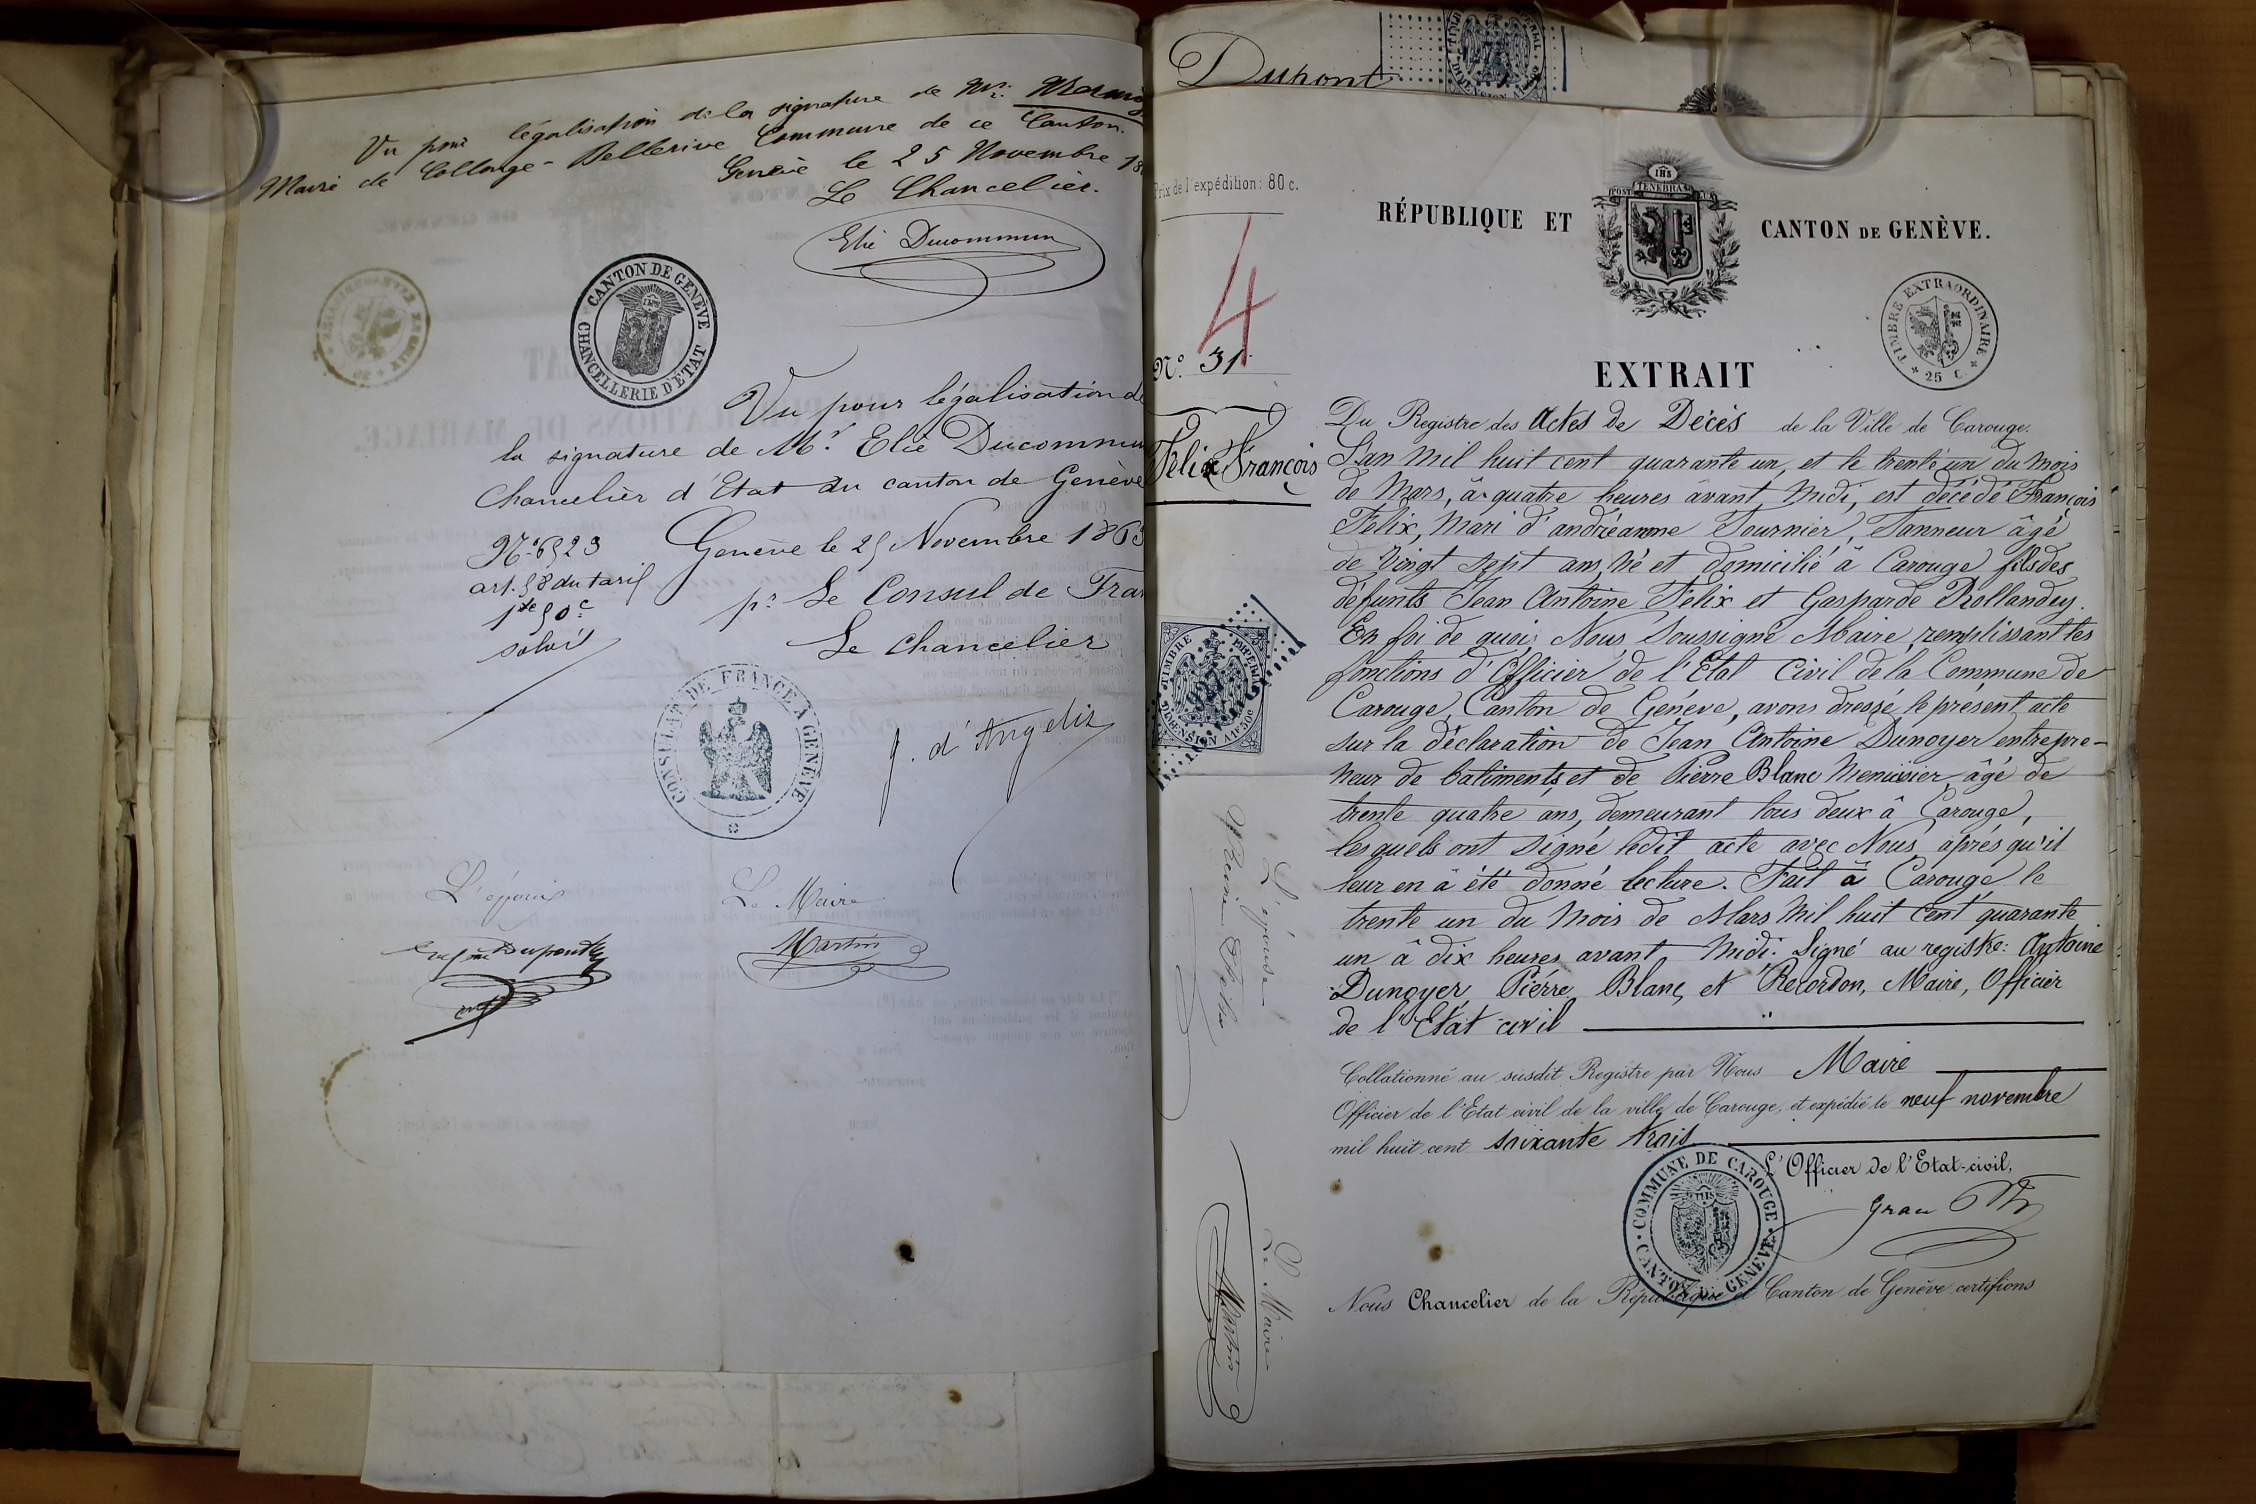 Vu pour légalisation de la signature de Mr.
Maire de Collonge-Bellerive Commune de ce Canton.
Genève le 25 Novembre 18
Le Chancelier.
Elie Ducommun
CANTON DE GENÈVE
CHANCELLERIE D'ETAT
Vu pour légalisation de
la signature de Mr. Elie Ducommun
Chancelier d'Etat du canton de Genève
No. 6523
Genève le 25 Novembre 1863
art. 58 du tarif
pr. Le Consul de Fran
Le chancelier
CONSULAT DE FRANCE A GENÈVE
J. d'Angelis
L'époux
Le Maire
Martin
Dupont
Prix de l'expédition: 80 c.
RÉPUBLIQUE ET CANTON DE GENÈVE.
POST TENEBRAS LUX
IHS
4
TIMBRE EXTRAORDINAIRE
25 C.
No. 31
EXTRAIT
Felix François
Du Registre des Actes de Décès de la Ville de Carouge.
L'an mil huit cent quarante un, et le trente un du mois
de Mars, à quatre heures avant midi, est décédé François
Felix, mari d'andréanne Fournier, Tanneur âgé
de Vingt sept ans, né et domicilié à Carouge fils des
défunts Jean Antoine Felix et Gasparde Rollandey.
En foi de quoi, Nous, soussigné Maire, remplissant les
fonctions d'Officier de l'Etat Civil de la Commune de
Carouge, Canton de Genève, avons dressé le présent acte
sur la déclaration de Jean Antoine Dunoyer entrepre-
neur de batiments et de Pierre Blanc Menuisier, âgé de
trente quatre ans, demeurant tous deux à Carouge,
lesquels ont signé ledit acte avec Nous après qu'il
leur en a été donné lecture. Fait à Carouge le
trente un du mois de Mars mil huit cent quarante
un à dix heures avant midi. Signé au registre: Antoine
Dunoyer, Pierre Blanc, et Recordon, Maire, Officier
de l'Etat civil
Collationné au susdit Registre par Nous Maire
Officier de l'Etat civil de la ville de Carouge, et expédié le neuf novembre
mil huit cent soixante trois
L'Officier de l'Etat-civil,
COMMUNE DE CAROUGE
CANTON DE GENÈVE
Nous Chancelier de la République et Canton de Genève certifions
TIMBRE IMPERIAL
DIMENSION
L'épouse
Le Maire
Martin